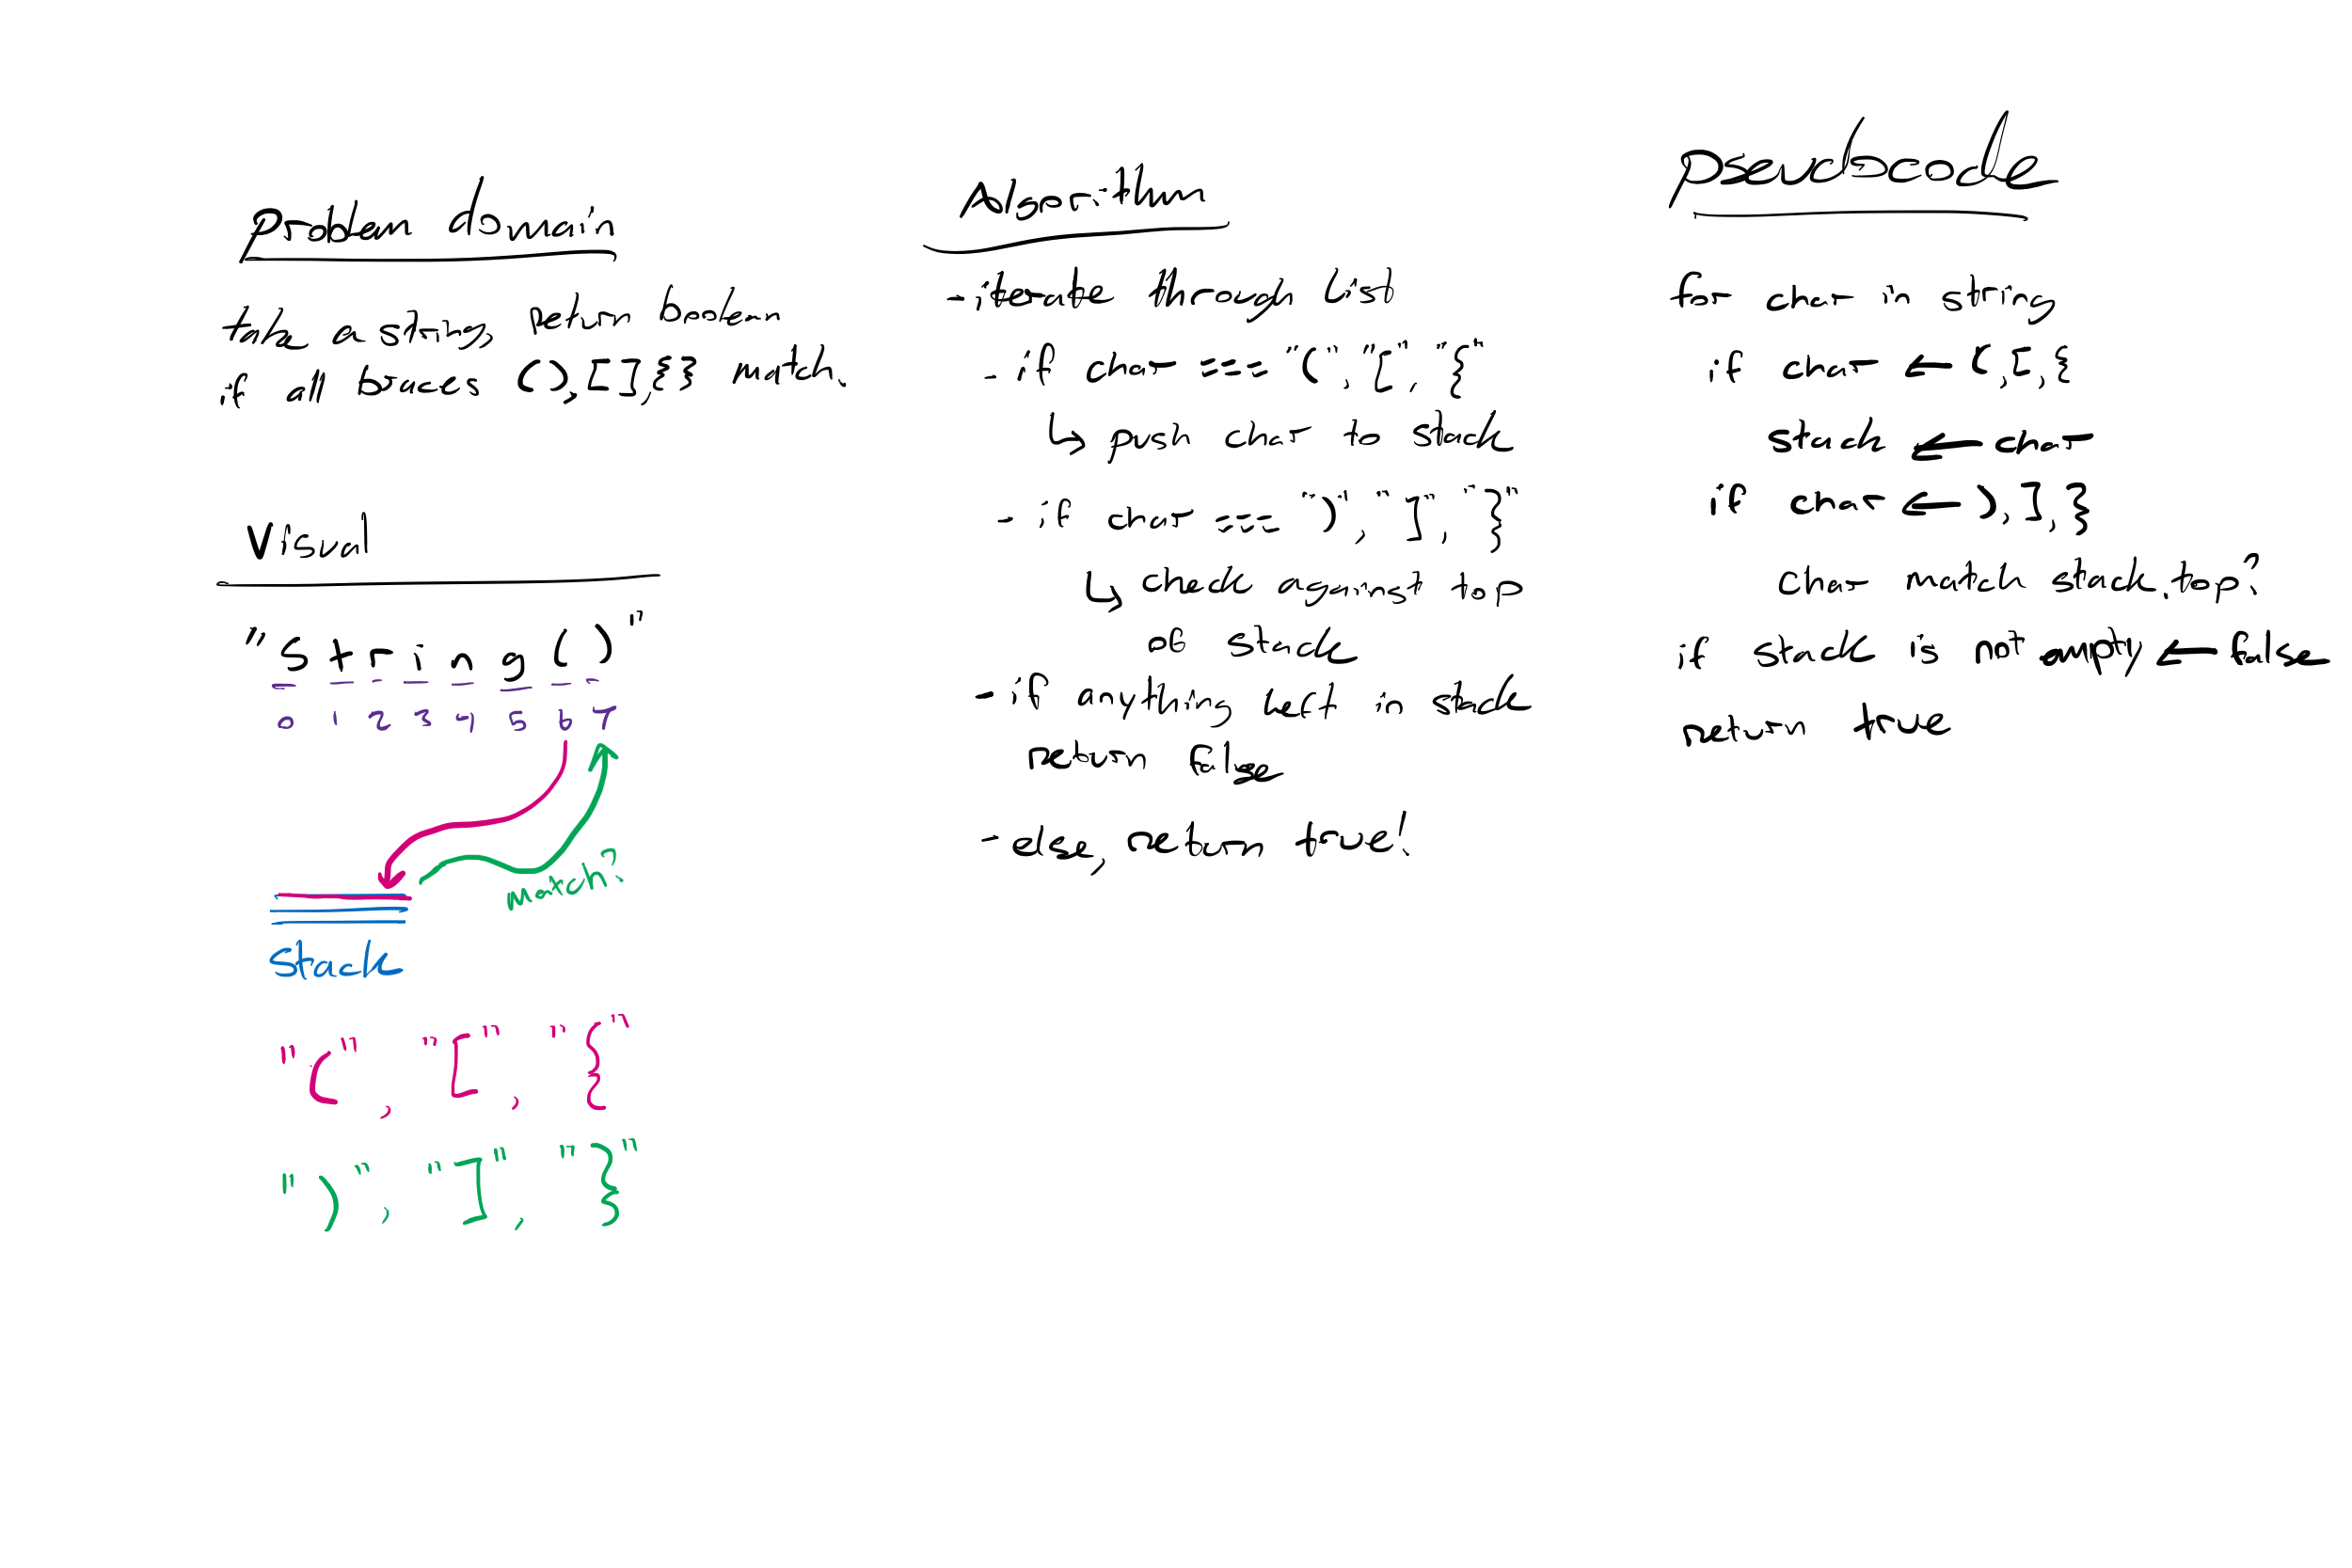 problem domain
take a string, return boolean
if all braces (),[],{} match.
Visual
"String()"
0 1 2 3 4 5 6 7
match?
stack
"(", "[", "{"
")", "]", "}"
Algorithm
-iterate through list
- if char === "(", "[", "{"
↳ push char to stack
- if char === ")", "]", "}"
↳ check against top
of stack
- if anything left in stack
return false
- else, return true!
pseudocode
for char in string
if char ← (,[,{
stack ← char
if char ← ),],}
char match stack.top?
if stack is not empty ← false
return true